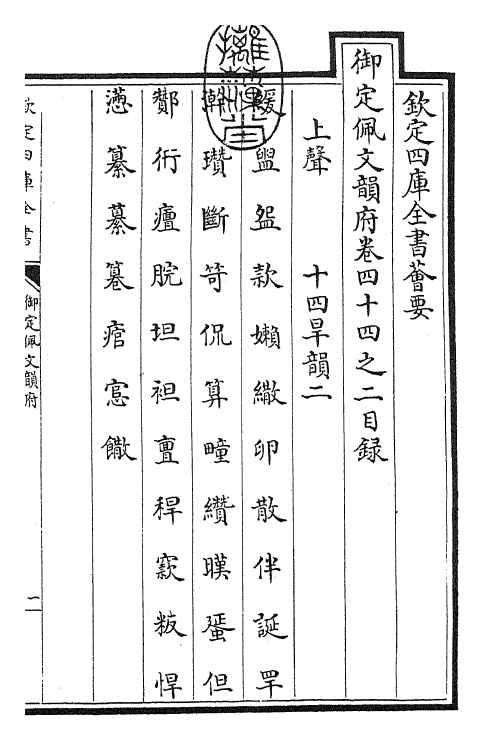 欽定四庫全書薈要
御定佩文韻府卷四十四之二目録
上聲　十四旱韻二
緩盥盌款嬾繖卵散伴誕罕
瓚斷笴侃算疃纘暵蜑但
酇衎癉脘坦袒亶稈窾粄悍
懣纂繤篹痯窓饊
欽定四庫全書
御定佩文韻府
一